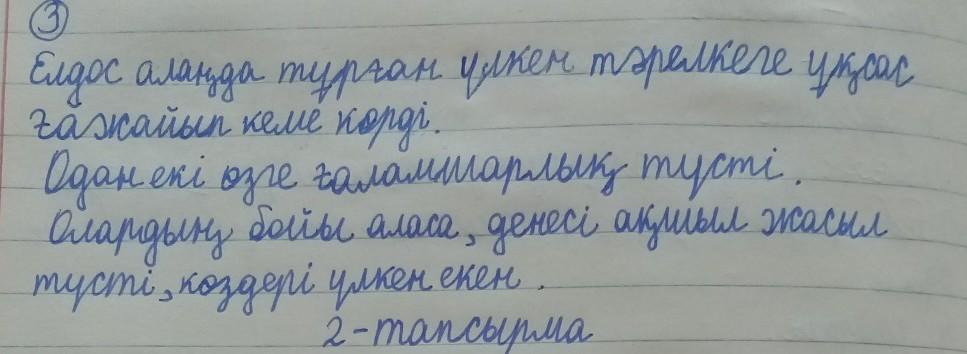 3
Елдос алаңда тұрған үлкен тәрелкеге ұқсас
ғажайып кеме көрді.
Одан екі өзге ғаламшарлық түсті.
Олардың бойы аласа, денесі ақшыл жасыл
түсті, көздері үлкен екен.
2-тапсырма